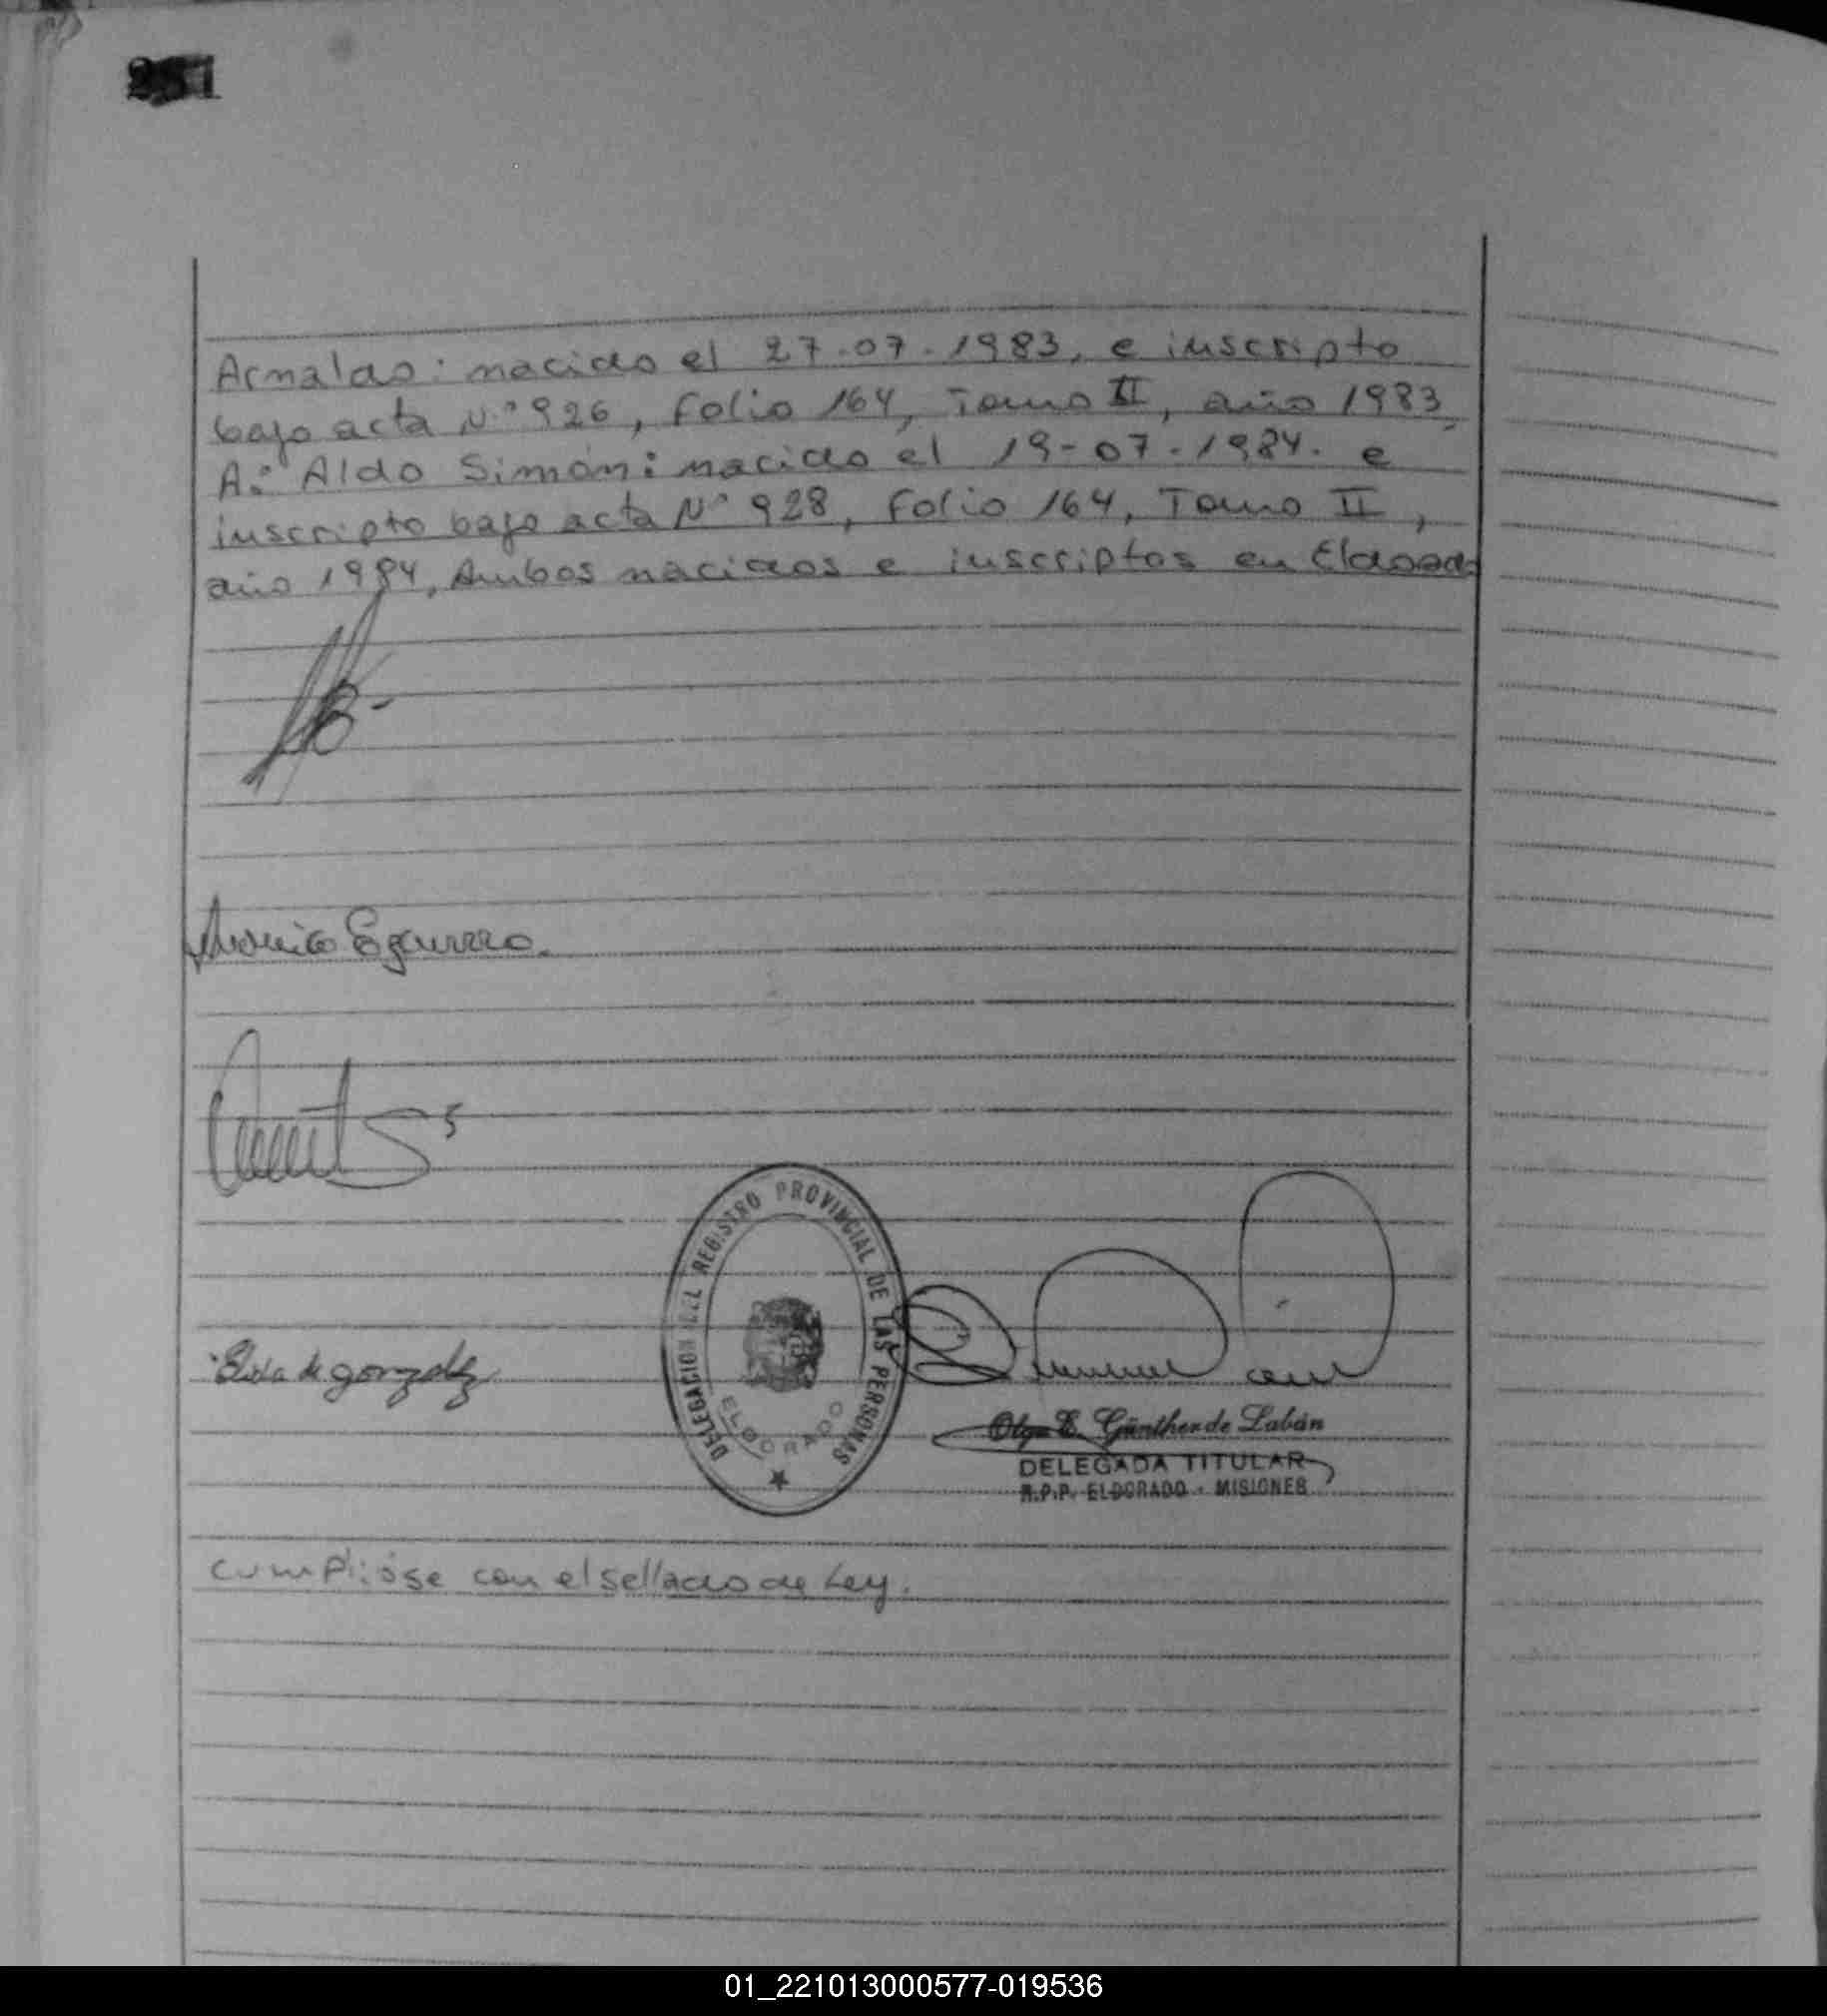 251
Arnaldo: nacido el 27-07-1983, e inscripto
bajo acta N° 926, Folio 164, Tomo II, año 1983,
A: Aldo Simón: nacido el 19-07-1984. e
inscripto bajo acta N° 928, Folio 164, Tomo II,
año 1984, Ambos nacidos e inscriptos en Eldorado
Ezcurra.
DELEGACION DEL REGISTRO PROVINCIAL DE LAS PERSONAS
ELDORADO
Elida de gonzalez
Olga E. Günther de Labán
DELEGADA TITULAR
R.P.P. ELDORADO - MISIONES
cumplióse con el sellado de Ley.
01_221013000577-019536